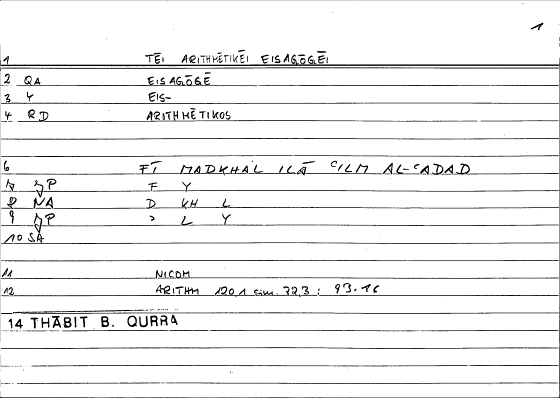 1
1 TĒI ARITHMĒTIKĒI EISAGŌGĒI
2 QA EISAGŌGĒ
3 Y EIS-
4 RD ARITHMĒTIKOS
6 FĪ MADKHAL ILĀ ʿILM AL-ʿADAD
P F Y
8 NA D KH L
9 P ʾ L Y
10 SA
11 NICOM
12 ARITHM 120,1 sim. 72,3 : 93.16
14 THĀBIT B. QURRA